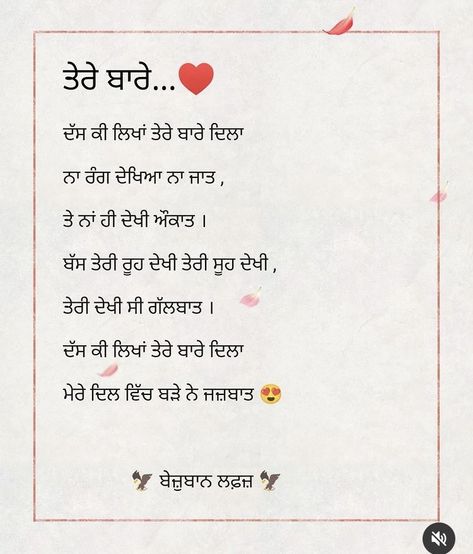 ਤੇਰੇ ਬਾਰੇ...❤️
ਦੱਸ ਕੀ ਲਿਖਾਂ ਤੇਰੇ ਬਾਰੇ ਦਿਲਾ
ਨਾ ਰੰਗ ਦੇਖਿਆ ਨਾ ਜਾਤ ,
ਤੇ ਨਾਂ ਹੀ ਦੇਖੀ ਔਕਾਤ ।
ਬੱਸ ਤੇਰੀ ਰੂਹ ਦੇਖੀ ਤੇਰੀ ਸੂਹ ਦੇਖੀ ,
ਤੇਰੀ ਦੇਖੀ ਸੀ ਗੱਲਬਾਤ ।
ਦੱਸ ਕੀ ਲਿਖਾਂ ਤੇਰੇ ਬਾਰੇ ਦਿਲਾ
ਮੇਰੇ ਦਿਲ ਵਿੱਚ ਬੜੇ ਨੇ ਜਜ਼ਬਾਤ 😍
🦅 ਬੇਜ਼ੁਬਾਨ ਲਫ਼ਜ਼ 🦅